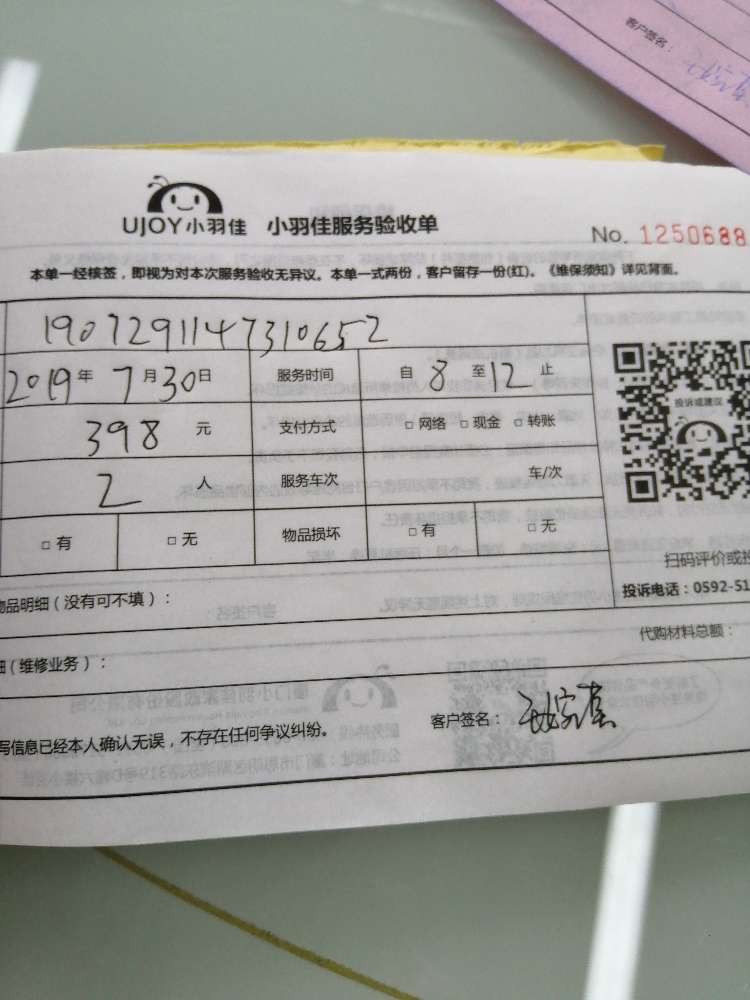 客户签名：
UJOY小羽佳 小羽佳服务验收单
No. 1250688
本单一经核签，即视为对本次服务验收无异议。本单一式两份，客户留存一份(红)。《维保须知》详见背面。
1907291147310652
2019年 7月30日 服务时间 自 8 至 12 止
398 元 支付方式 □ 网络 □ 现金 □ 转账
投诉或建议
2 人 服务车次 车/次
□ 有 □ 无 物品损坏 □ 有 □ 无
扫码评价或投
物品明细（没有可不填）：
投诉电话：0592-51
代购材料总额：
（维修业务）：
客户签名：
写信息已经本人确认无误，不存在任何争议纠纷。